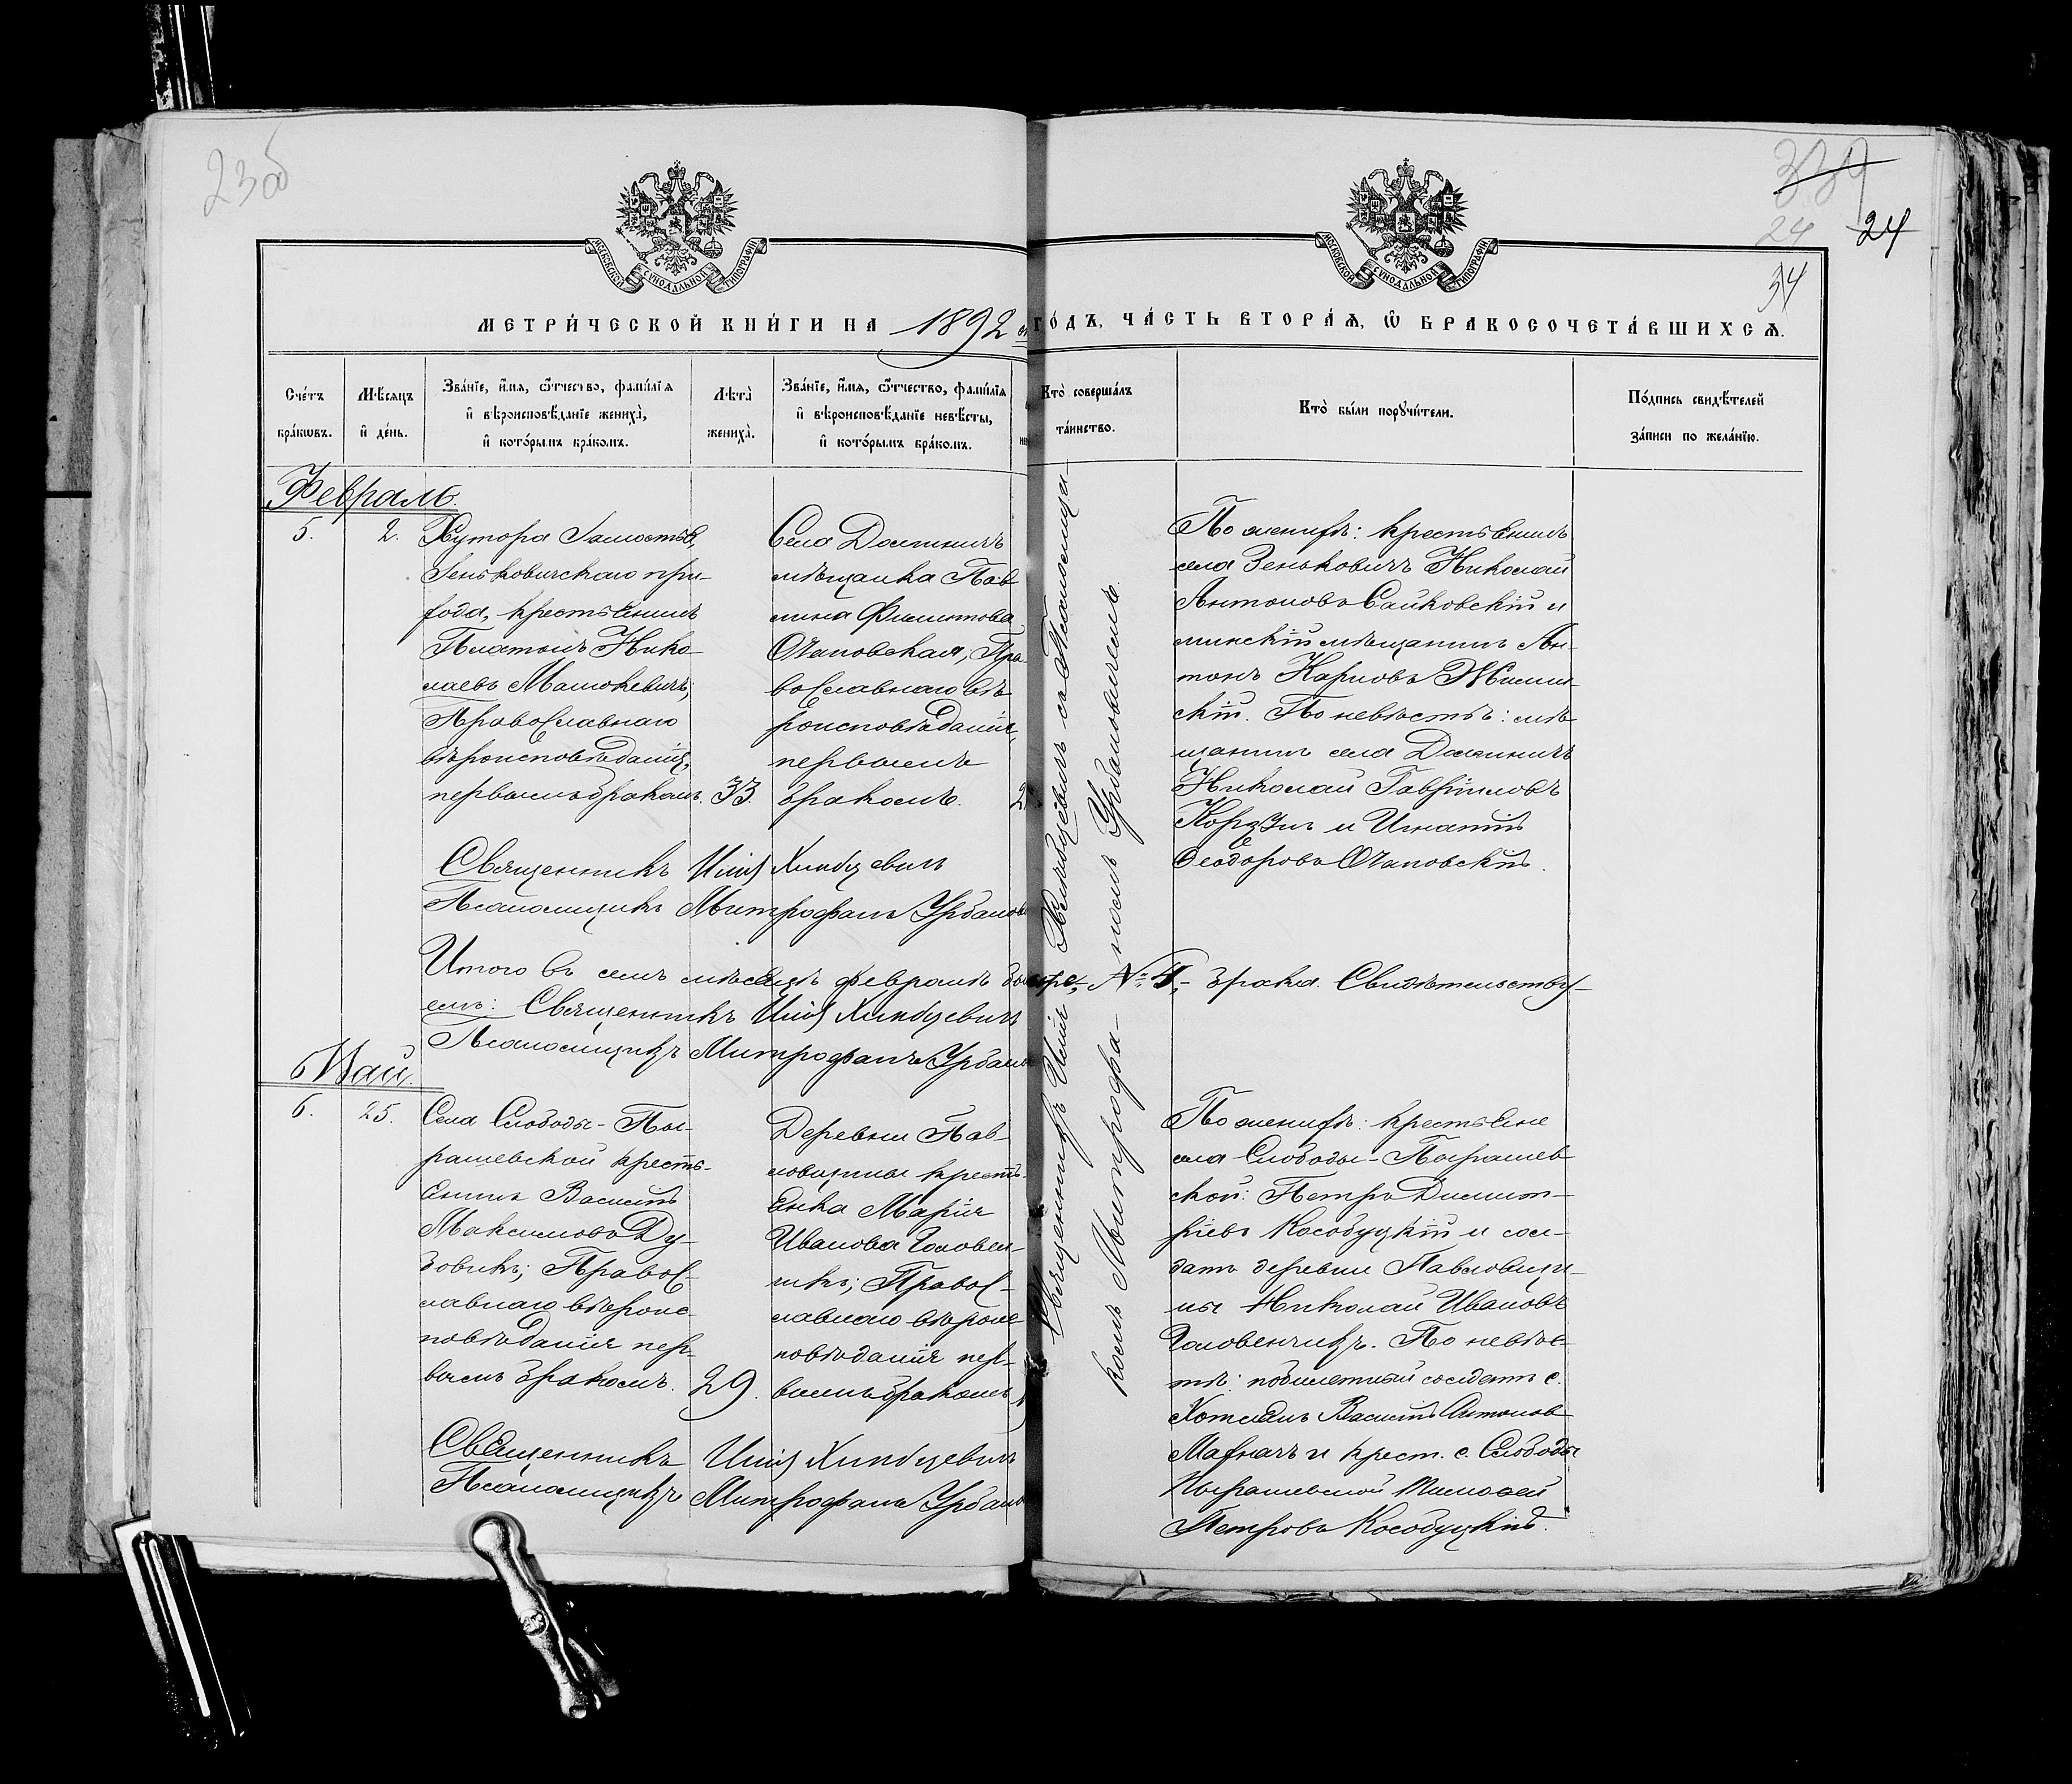 23об
339
24
24
34
МОСКОВСКОЙ СѴНОДАЛЬНОЙ ТИПОГРАФІИ
МОСКОВСКОЙ СѴНОДАЛЬНОЙ ТИПОГРАФІИ
МЕТРИ́ЧЕСКОЙ КНИ́ГИ НА 1892 ГО́ДЪ, ЧА́СТЬ ВТОРА́Ѧ, Ѡ БРАКОСОЧЕТА́ВШИХСѦ.
Сче́тъ
бра́кѡвъ.
Мѣ́сяцъ
и҆ де́нь.
Зва́нїе, и҆́мя, ѻ҆́тчество, фами́лїя
и҆ вѣроисповѣ́данїе жениха̀,
и҆ кото́рымъ бра́комъ.
Лѣта̀
жениха̀.
Зва́нїе, и҆́мя, ѻ҆́тчество, фами́лїя
и҆ вѣроисповѣ́данїе невѣ́сты,
и҆ кото́рымъ бра́комъ.
Кто̀ соверша́лъ
та́инство.
Кто̀ бы́ли порꙋчи́тели.
По́дпись свидѣ́телей
за́писи по жела́нїю.
Февраль.
5.
2.
Хутора Замостья,
Зеньковичскаго при-
хода, крестьянинъ
Платонъ Нико-
лаевъ Машкевичъ;
Православнаго
вѣроисповѣданія,
первымъ бракомъ.
33.
Села
мѣщанка Пав
лина Филиппова
Очаповская, Пра-
вославнаго вѣ
роисповѣданія,
первымъ
бракомъ.
Священникъ Илія Хиндцевичъ
Псаломщикъ Митрофанъ Урбанов
Священникъ Илія Хиндцевичъ съ Псаломщи-
комъ Митрофа- номъ Урбановичемъ.
По женихѣ: крестьянинъ
села Зеньковичъ Николай
Антоновъ Сачковскій и
минскій мѣщанинъ Ан-
тонъ Карповъ Жилин-
скій. По невѣстѣ: мѣ
щанинъ села
Николай Гавріиловъ
Корзунъ и Игнатій
Ѳеодоровъ Очаповскій.
Итого въ семъ мѣсяцѣ февралѣ № 4, - брака. Свидѣтельству-
емъ: Священникъ Илія Хиндцевичъ
Псаломщикъ Митрофанъ Урбано
Май.
6.
25.
Села Слободы-Пы-
рашевской кресть-
янинъ Василій
Максимовъ Ду-
бовикъ; Правос-
лавнаго вѣроис-
повѣданія пер-
вымъ бракомъ.
29.
Деревни Пав-
ловщины кресть-
янка Марія
Иванова Головен-
чикъ; Правос-
лавнаго вѣроис
повѣданія пер-
вымъ бракомъ
Священникъ Илія Хиндцевичъ
Псаломщикъ Митрофанъ Урбано
По женихѣ: крестьяне
села Слободы-Пырашев
ской: Петръ Димит-
ріевъ Кособуцкій и сол-
датъ деревни Павловщи-
ны Николай Ивановъ
Головенчикъ. По невѣс-
тѣ: побилетный солдатъ с.
Хотлянъ Василій Антоновъ
Махначъ и крест. с. Слободы
Пырашевской
Петровъ Кособуцкій.